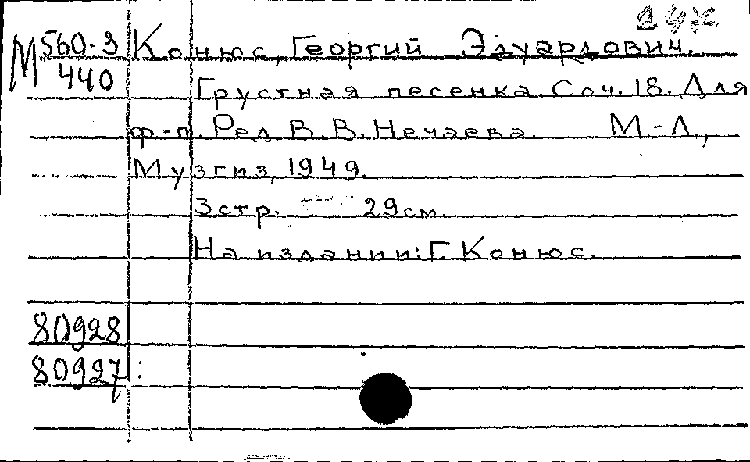 М 560-3 Конюс, Георгий Эдуардович.
440 Грустная песенка. Соч. 18. Для
ф-п. Ред. В. В. Нечаева. М-Л.,
Музгиз, 1949.
3стр. 29см.
На издании: Г. Конюс.
80928
80927: